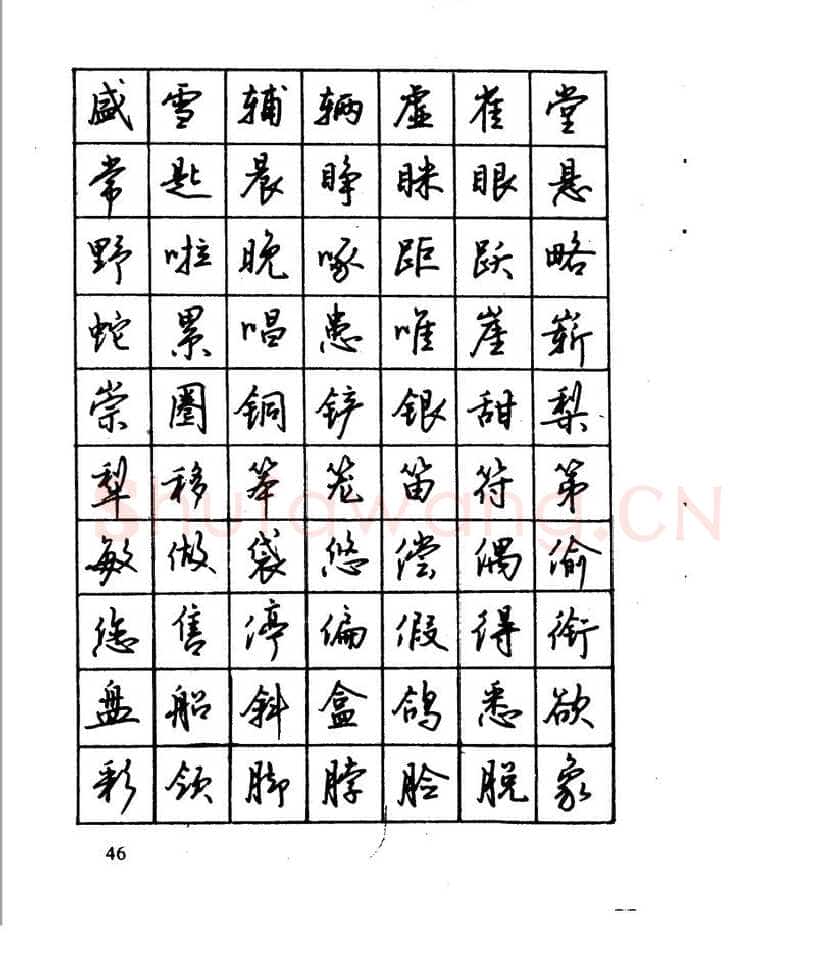 盛雪辅辆虚雀堂
常匙晨睁眯眼悬
野啦晚啄距跃略
蛇累唱患唯崖崭
崇圈铜铲银甜梨
犁移笨笼笛符第
敏做袋悠偿偶偷
您售停偏假得衔
盘船斜盒鸽悉欲
彩领脚脖脸脱象
46
Shufawang.CN